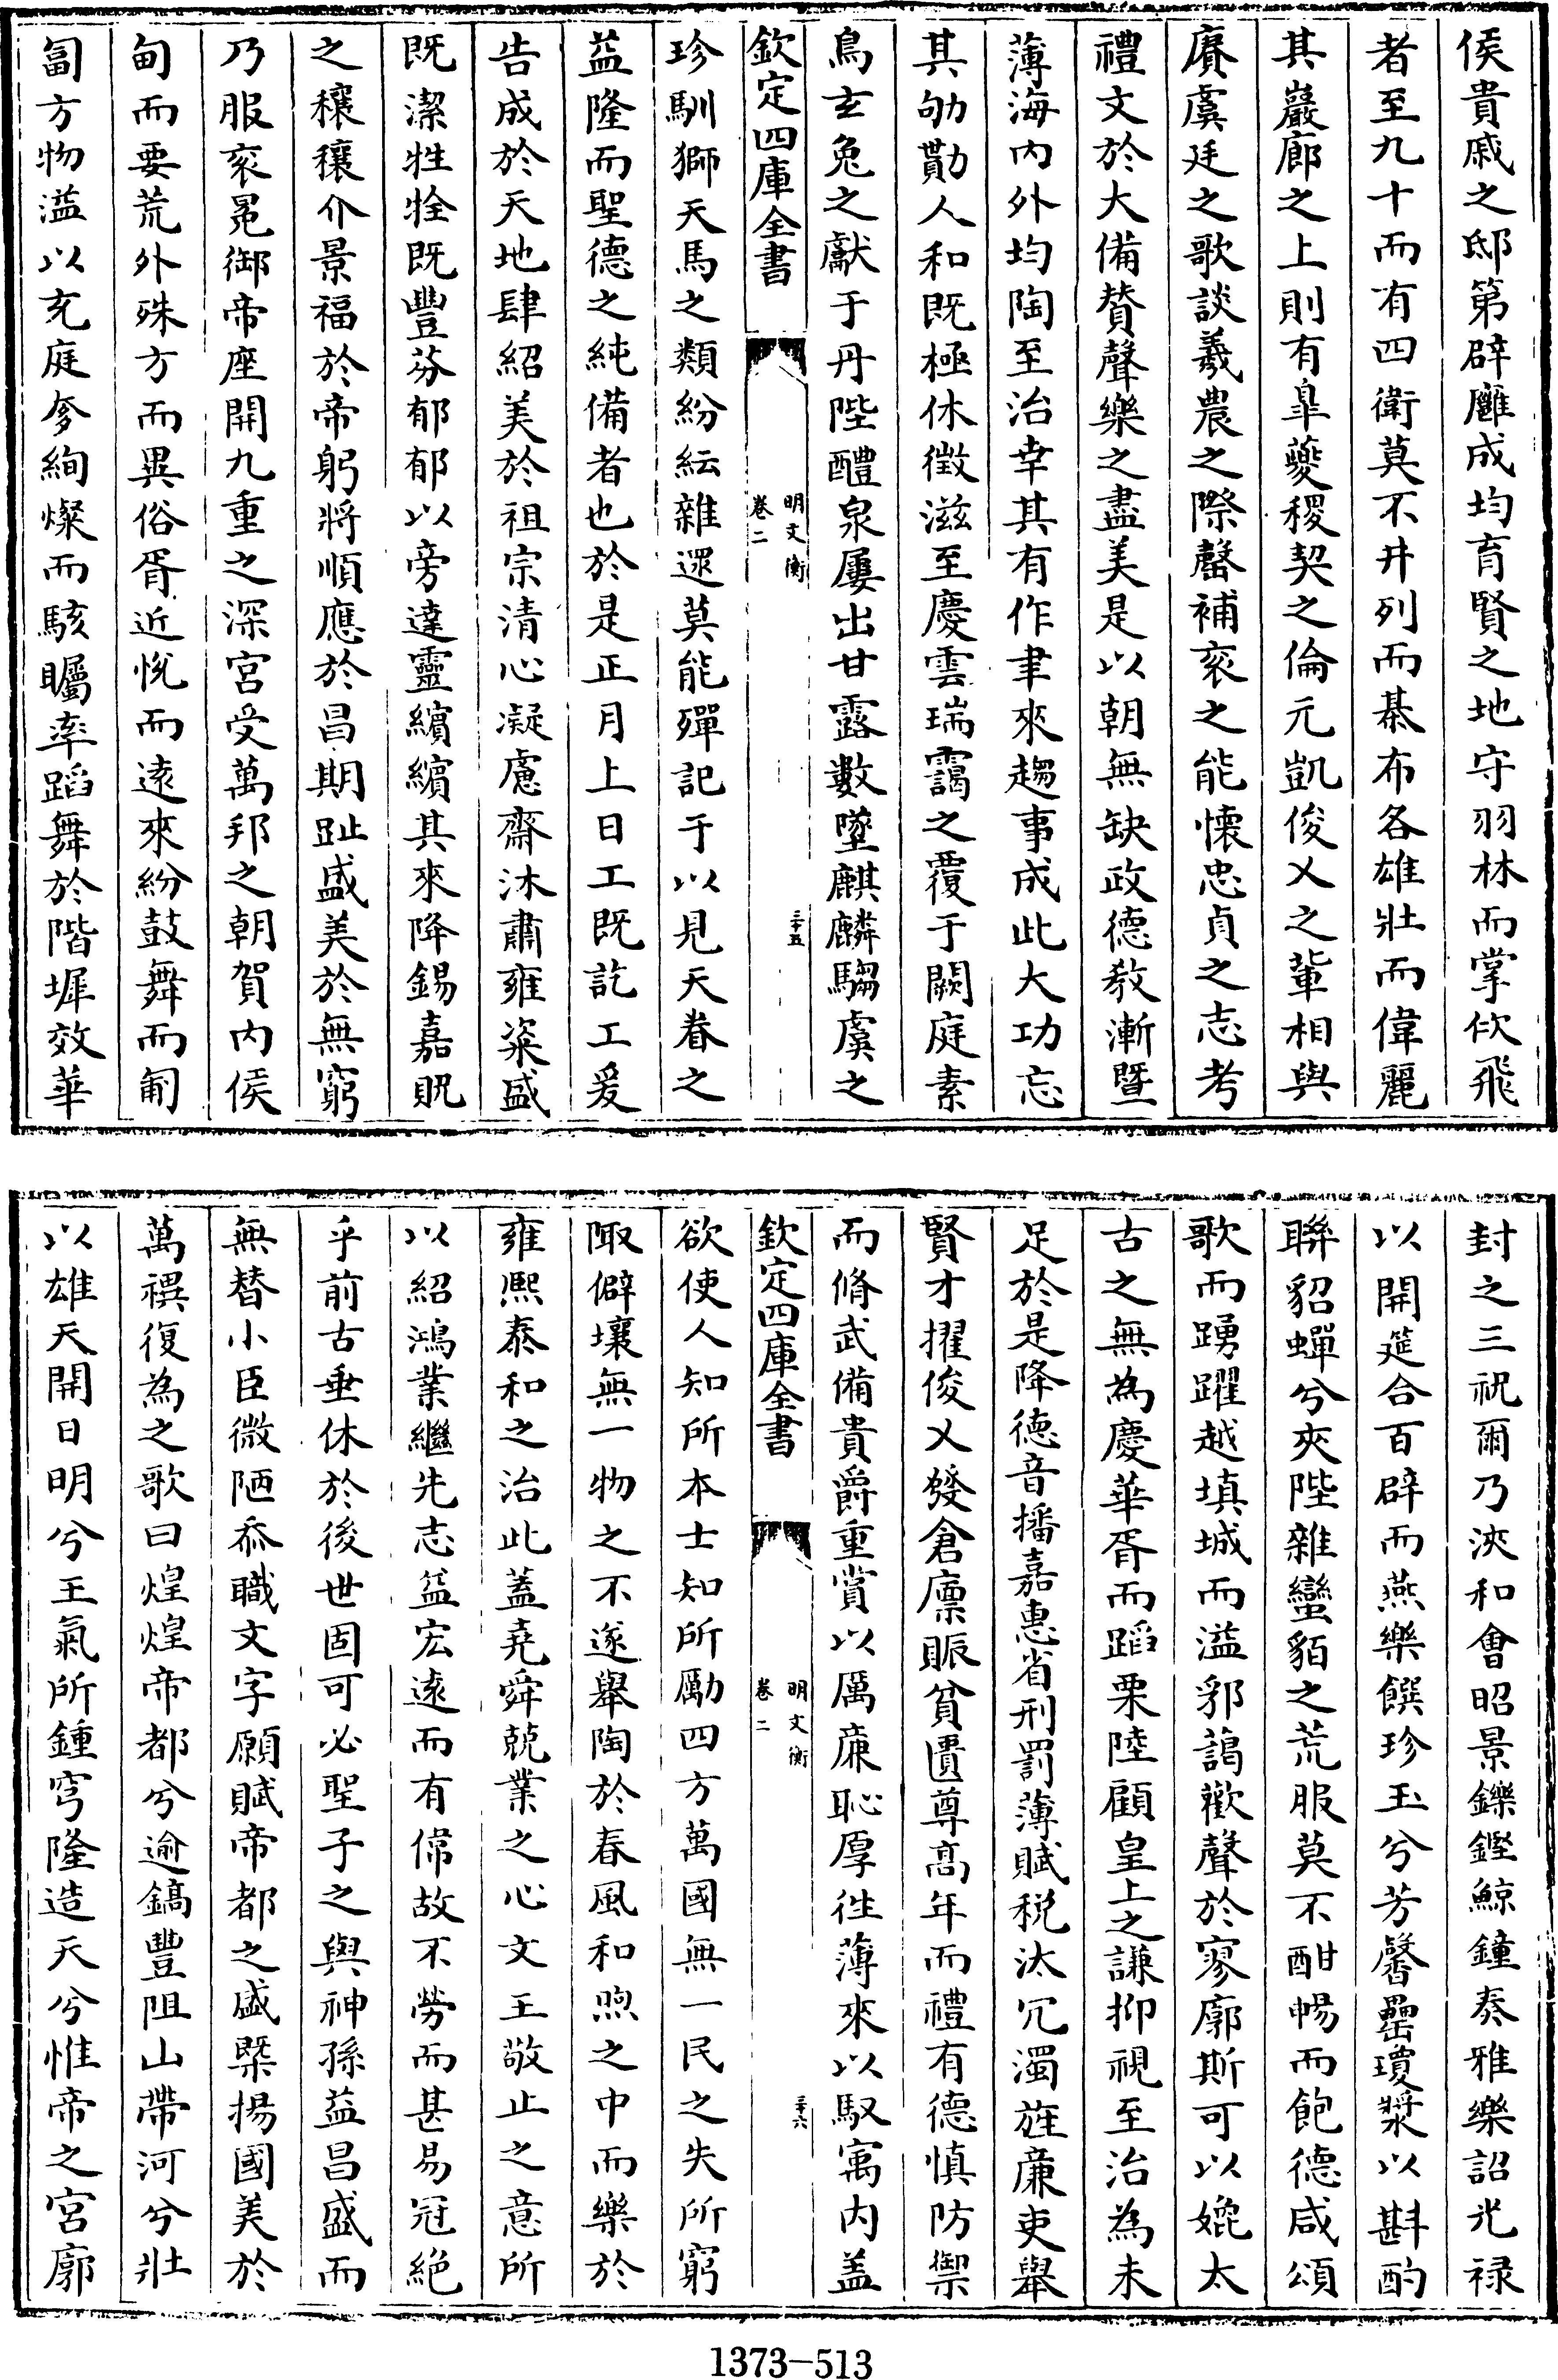 侯貴戚之邸第辟廱成均育賢之地守羽林而掌佽飛
者至九十而有四衛莫不井列而棊布各雄壯而偉麗
其巖廊之上則有皐夔稷契之倫元凱俊乂之軰相與
賡虞廷之歌談羲農之際罄補衮之能懐忠貞之志考
禮文於大備賛聲樂之盡美是以朝無缺政德教漸暨
薄海内外均陶至治幸其有作聿來趨事成此大功忘
其劬勩人和既極休徴滋至慶雲瑞靄之覆于闕庭素
鳥玄兔之獻于丹陛醴泉屢出甘露數墜麒麟騶虞之
欽定四庫全書
明文衡
卷二
三十五
珍馴獅天馬之類紛紜雜遝莫能殫記于以見天眷之
益隆而聖德之純備者也於是正月上日工既訖工爰
告成於天地肆紹美於祖宗清心凝慮齋沐肅雍粢盛
既潔牲牷既豐芬郁郁以旁達靈繽繽其來降錫嘉貺
之穰穰介景福於帝躬將順應於昌期趾盛美於無窮
乃服衮冕御帝座開九重之深宫受萬邦之朝賀内侯
甸而要荒外殊方而異俗胥近悅而逺來紛鼓舞而匍
匐方物溢以充庭紛絢燦而駭矚率蹈舞於階墀效華
封之三祝爾乃浹和會昭景鑠鏗鯨鐘奏雅樂詔光禄
以開筵合百辟而燕樂饌珍玉兮芳馨罍瓊漿以斟酌
聯貂蟬兮夾陛雜蠻貊之荒服莫不酣暢而飽德咸頌
歌而踴躍越填城而溢郛藹歡聲於寥廓斯可以媲太
古之無為慶華胥而蹈栗陸顧皇上之謙抑視至治為未
足於是降德音播嘉惠省刑罰薄賦税汰冗濁旌廉吏舉
賢才擢俊乂發倉廪賑貧匱尊髙年而禮有德慎防禦
而脩武備貴爵重賞以厲廉恥厚徃薄來以馭寓内盖
欽定四庫全書
明文衡
卷二
三十六
欲使人知所本士知所勵四方萬國無一民之失所窮
陬僻壤無一物之不遂舉陶於春風和煦之中而樂於
雍熙泰和之治此蓋堯舜兢業之心文王敬止之意所
以紹鴻業繼先志益宏逺而有倞故不勞而甚易冠絶
乎前古垂休於後世固可必聖子之與神孫益昌盛而
無替小臣微陋忝職文字願賦帝都之盛槩揚國美於
萬禩復為之歌曰煌煌帝都兮逾鎬豐阻山帶河兮壯
以雄天開日明兮王氣所鍾穹隆造天兮惟帝之宫廓
1373-513